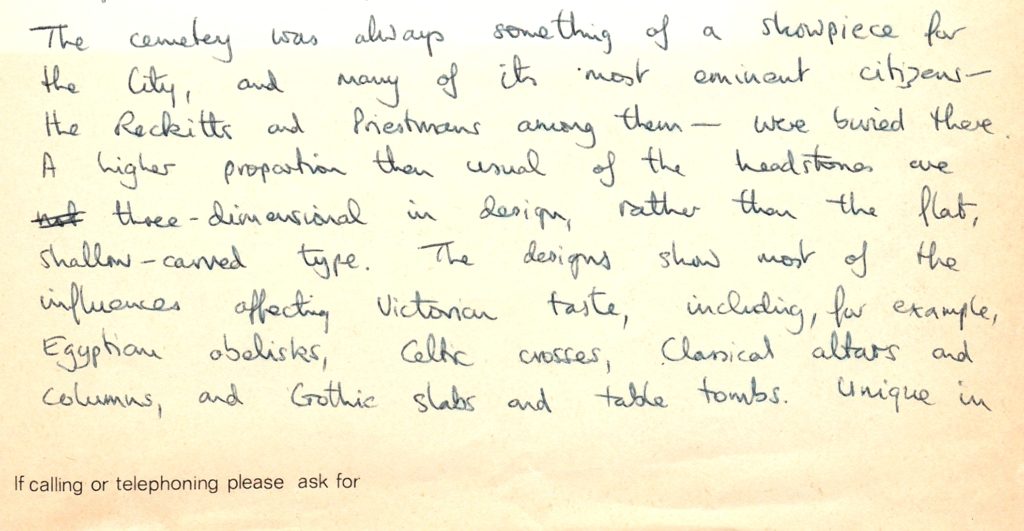 The cemetery was always something of a showpiece for
the City, and many of its most eminent citizens—
the Reckitts and Priestmans among them— were buried there.
A higher proportion than usual of the headstones are
not three-dimensional in design, rather than the flat,
shallow-carved type. The designs show most of the
influences affecting Victorian taste, including, for example,
Egyptian obelisks, Celtic crosses, Classical altars and
columns, and Gothic slabs and table tombs. Unique in
If calling or telephoning please ask for